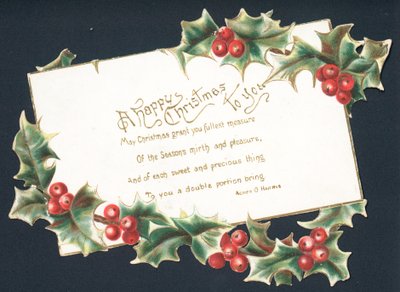 A Happy
Christmas
To You
May Christmas grant you fullest measure
Of the Season's mirth and pleasure,
and of each sweet and precious thing
To you a double portion bring
Agnes O Harris